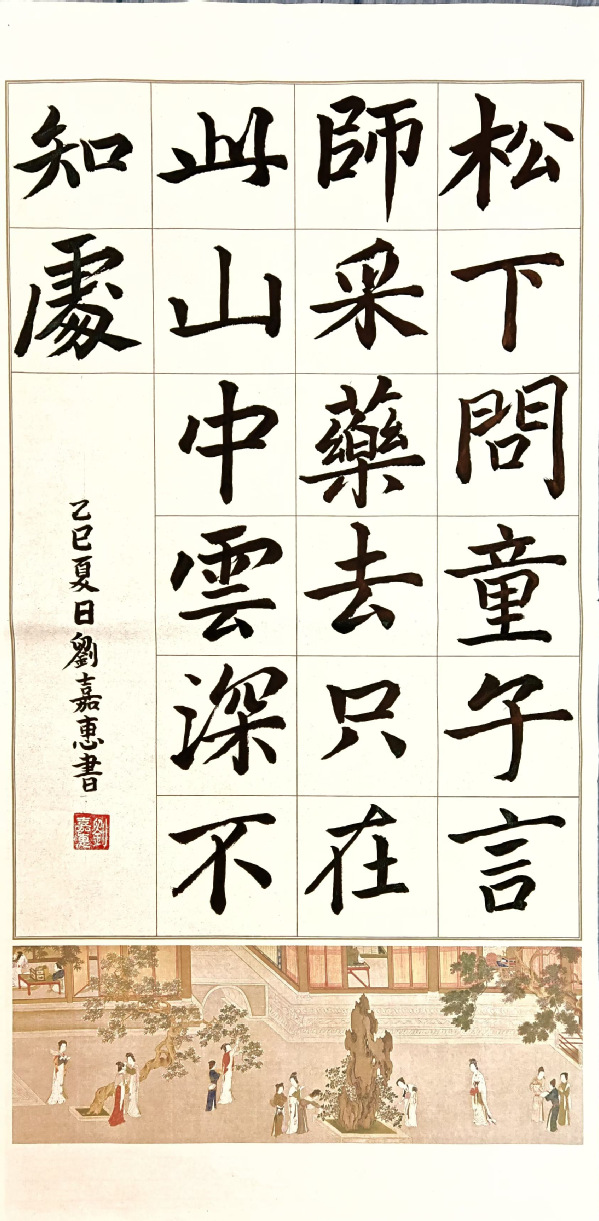 松下問童子言
師采藥去只在
此山中雲深不
知處
乙巳夏日劉嘉惠書
劉嘉惠